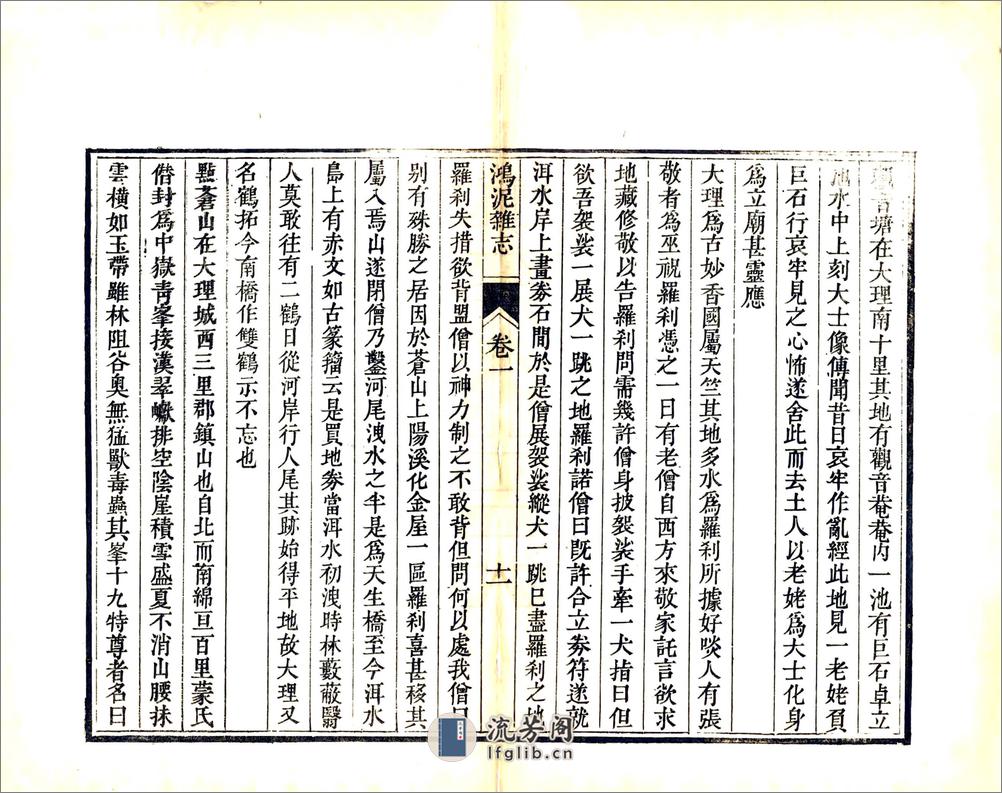 塘在大理南十里其地有觀音菴菴內一池有巨石卓立
池水中上刻大士像傳聞昔日哀牢作亂經此地見一老姥負
巨石行哀牢見之心怖遂舍此而去土人以老姥爲大士化身
爲立廟甚靈應
大理爲古妙香國屬天竺其地多水爲羅刹所據好啖人有張
敬者爲巫視羅刹憑之一日有老僧自西方來敬家託言欲求
地藏修敬以告羅刹問需幾許僧身披袈裟手牽一犬指曰但
欲吾袈裟一展犬一跳之地羅刹諾僧曰既許合立券符遂就
洱水岸上畫券石間於是僧展袈裟縱犬一跳已盡羅刹之地
鴻泥雜志 卷一 十一
羅刹失措欲背盟僧以神力制之不敢背但問何以處我僧曰
别有殊勝之居因於蒼山上陽溪化金屋一區羅刹喜甚移其
屬入焉山遂閉僧乃鑿河尾洩水之半是爲天生橋至今洱水
島上有赤文如古篆籀云是買地券當洱水初洩時林藪蔽翳
人莫敢往有二鶴日從河岸行人尾其跡始得平地故大理又
名鶴拓今南橋作雙鶴示不忘也
點蒼山在大理城西三里郡鎮山也自北而南綿亘百里蒙氏
僭封爲中嶽青峯接漢翠巘排空陰崖積雪盛夏不消山腰抹
雲橫如玉帶雖林阻谷奧無猛獸毒蟲其峯十九特尊者名曰
流芳阁
lfglib.cn